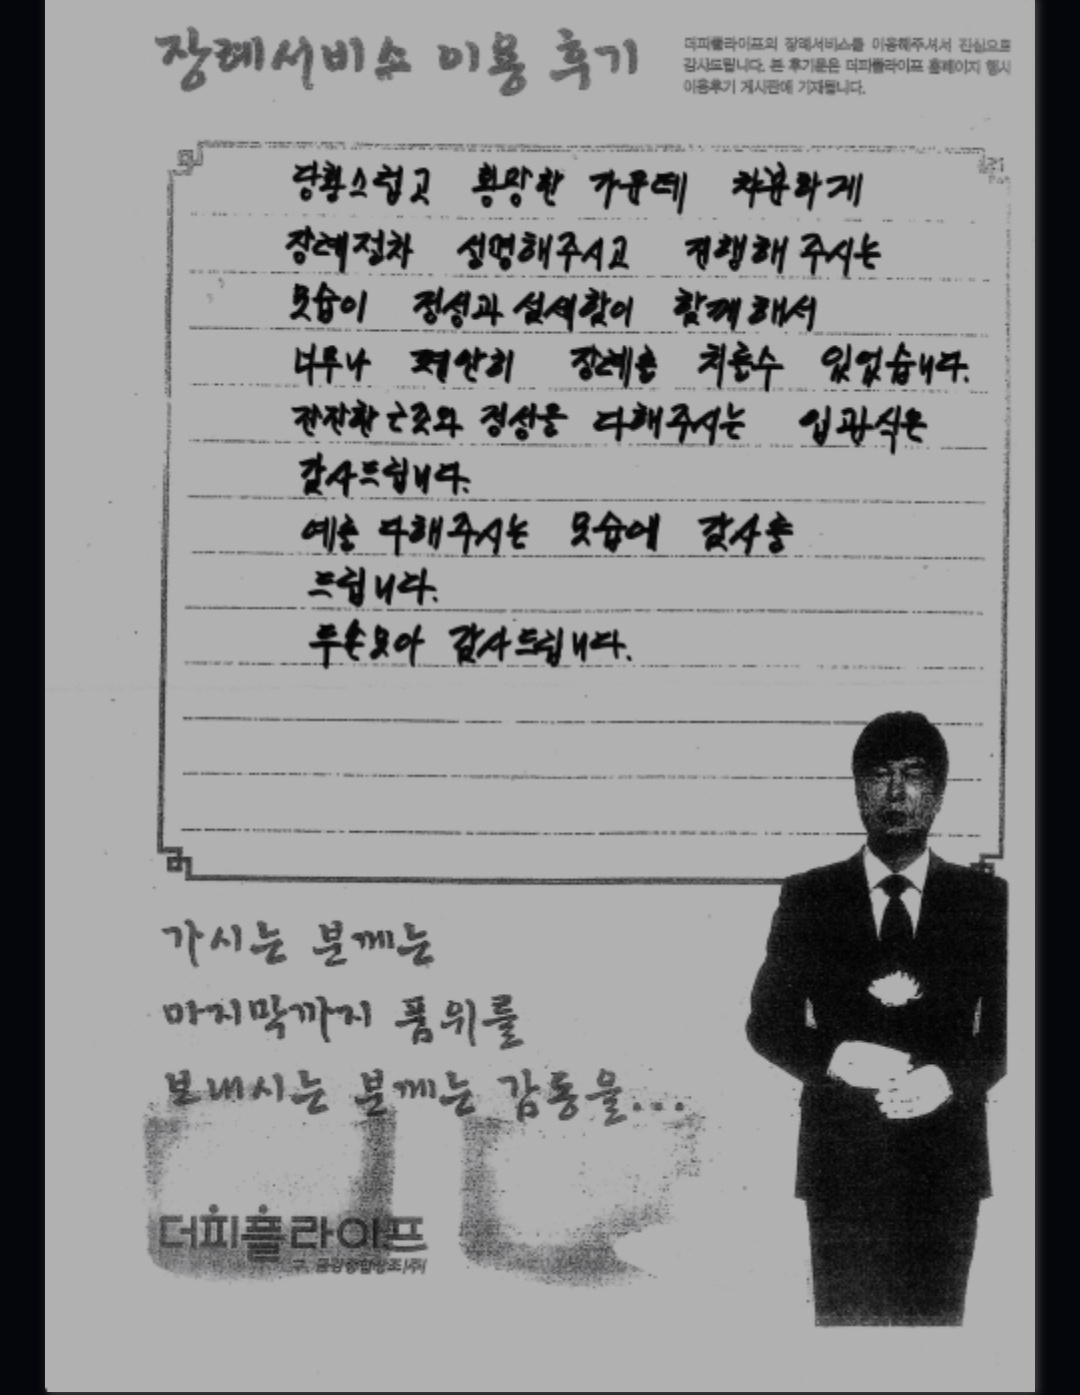 장례서비스 이용 후기
더피플라이프의 장례서비스를 이용해주셔서 진심으로
감사드립니다. 본 후기문은 더피플라이프 홈페이지 행사
이용후기 게시판에 기재됩니다.
당황스럽고 황망한 가운데 차분하게
장례절차 설명해주시고 진행해 주시는
모습이 정성과 섬세함이 함께해서
너무나 편안히 장례를 치를수 있었습니다.
잔잔한 정성을 다해주시는 입관식은
감사드립니다.
예를 다해주시는 모습에 감사를
드립니다.
두손모아 감사드립니다.
가시는 분께는
마지막까지 품위를
보내시는 분께는 감동을...
더피플라이프
구. 금강종합상조(주)